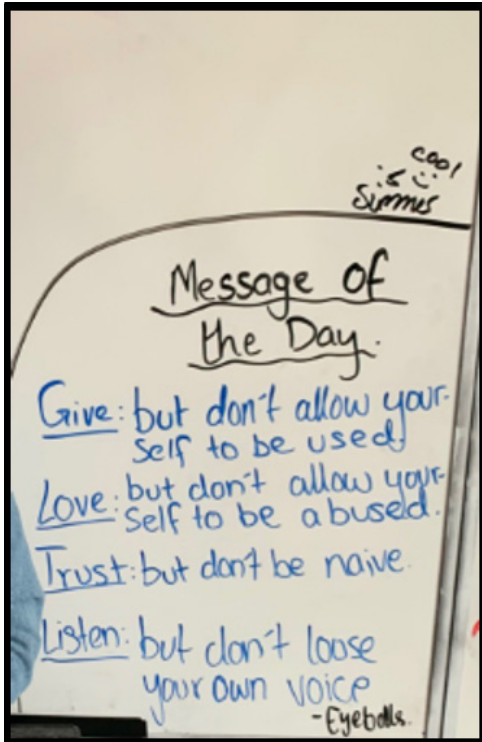 cool
is
Simmes
Message of
the Day.
Give: but don't allow your-
self to be used.
Love: but don't allow your-
self to be abused.
Trust: but don't be naive.
Listen: but don't loose
your own voice
-Eyeballs.